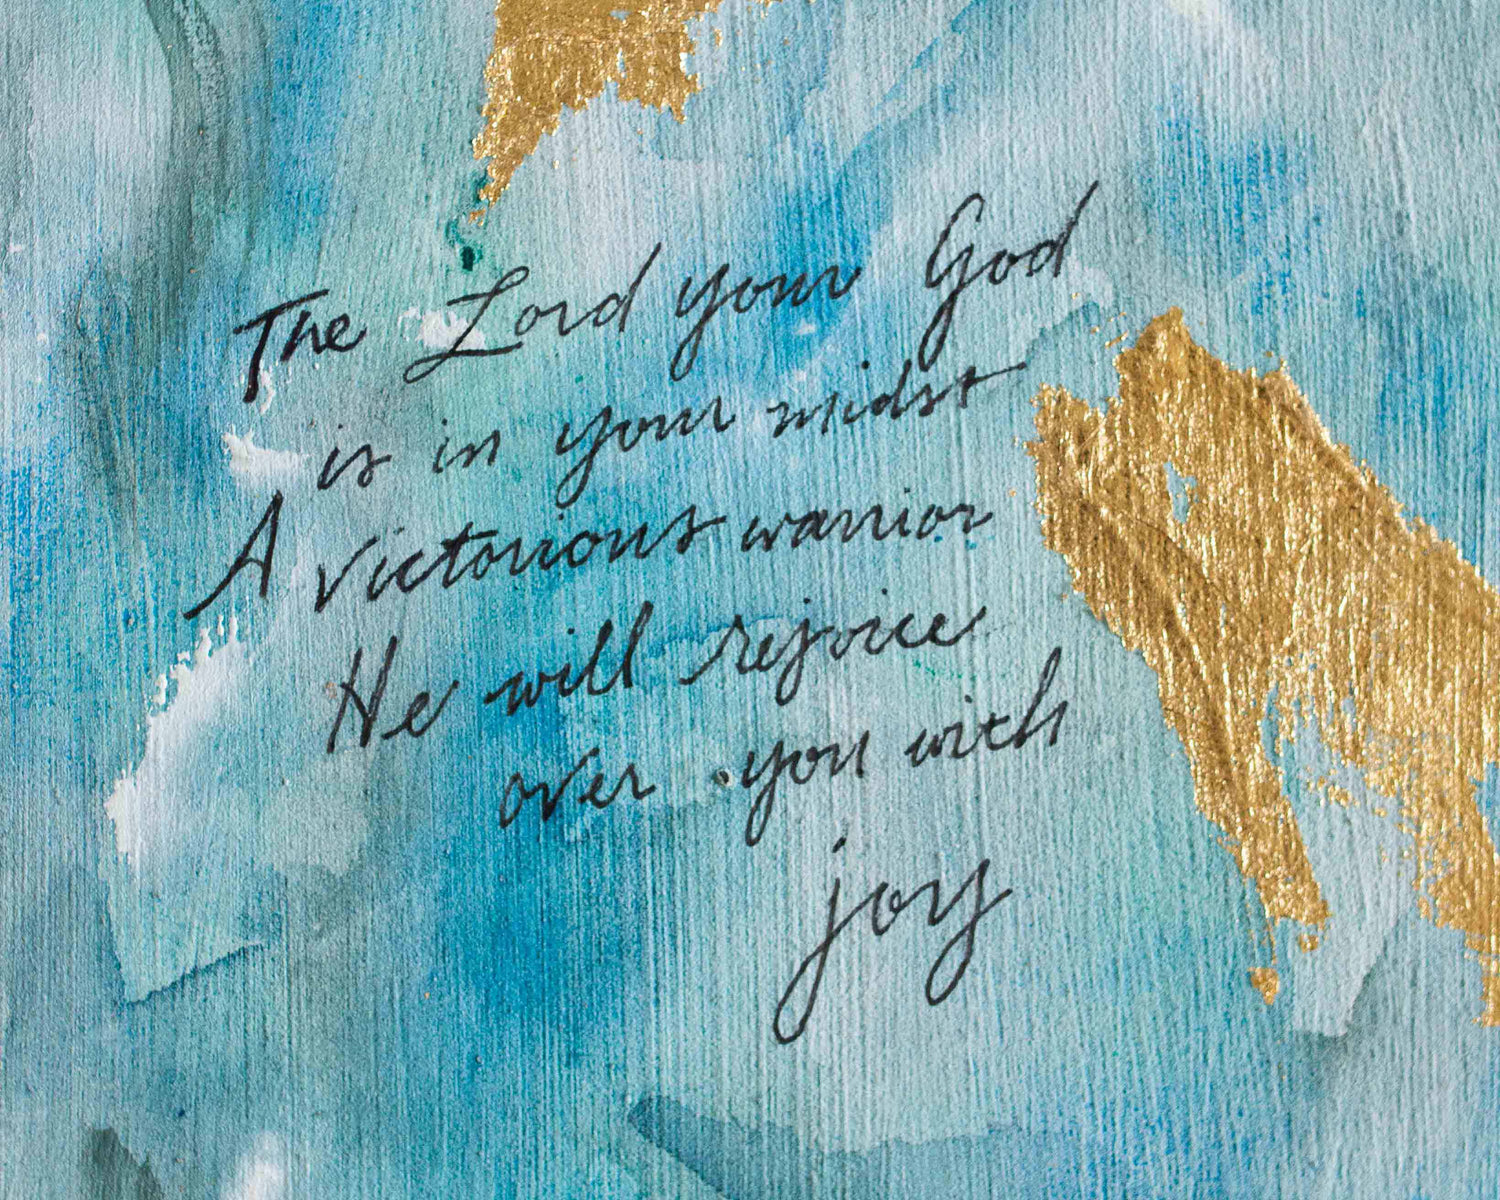 The Lord your God
is in your midst
A victorious warrior
He will rejoice
over you with
joy